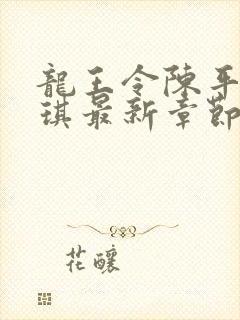 龍王令陳平
琪最新章節
花釀